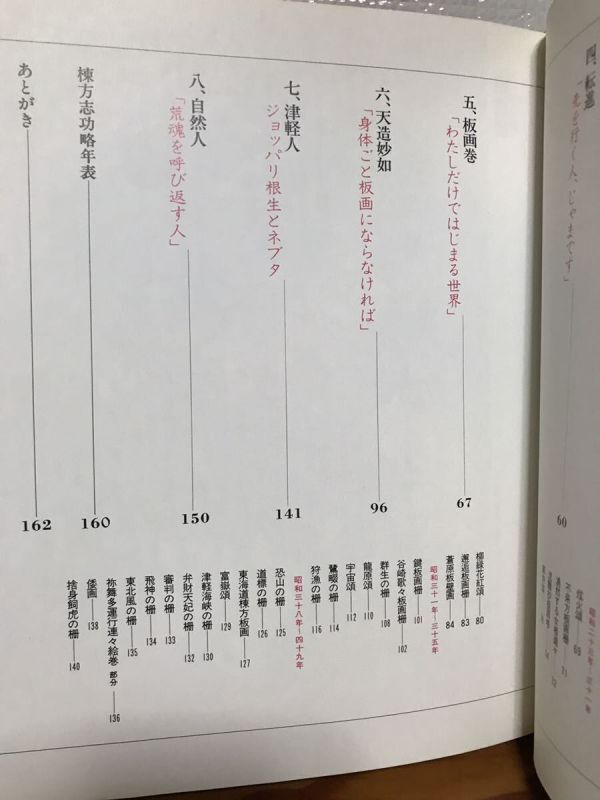 四、転進
「先を行く人、じゃまです」
60
五、板画巻
「わたしだけではじまる世界」
67
六、天造妙如
「身体ごと板画にならなければ」
96
七、津軽人
ジョッパリ根生とネブタ
141
八、自然人
「荒魂を呼び返す人」
150
棟方志功略年表
160
あとがき
162
69
71
柳緑花紅頌 80
邂逅板画柵 83
蒼原板壁画 84
昭和三十一年―三十五年
鍵板画柵 101
谷崎歌々板画柵 102
群生の柵 108
龍原頌 110
宇宙頌 112
鷺畷の柵 114
狩漁の柵 116
昭和三十八年―四十九年
恐山の柵 125
道標の柵 126
東海道棟方板画 127
富嶽頌 129
津軽海峡の柵 130
弁財天妃の柵 132
審判の柵 133
飛神の柵 134
東北風の柵 135
祢舞多運行連々絵巻 部分 136
倭画 138
捨身飼虎の柵 140